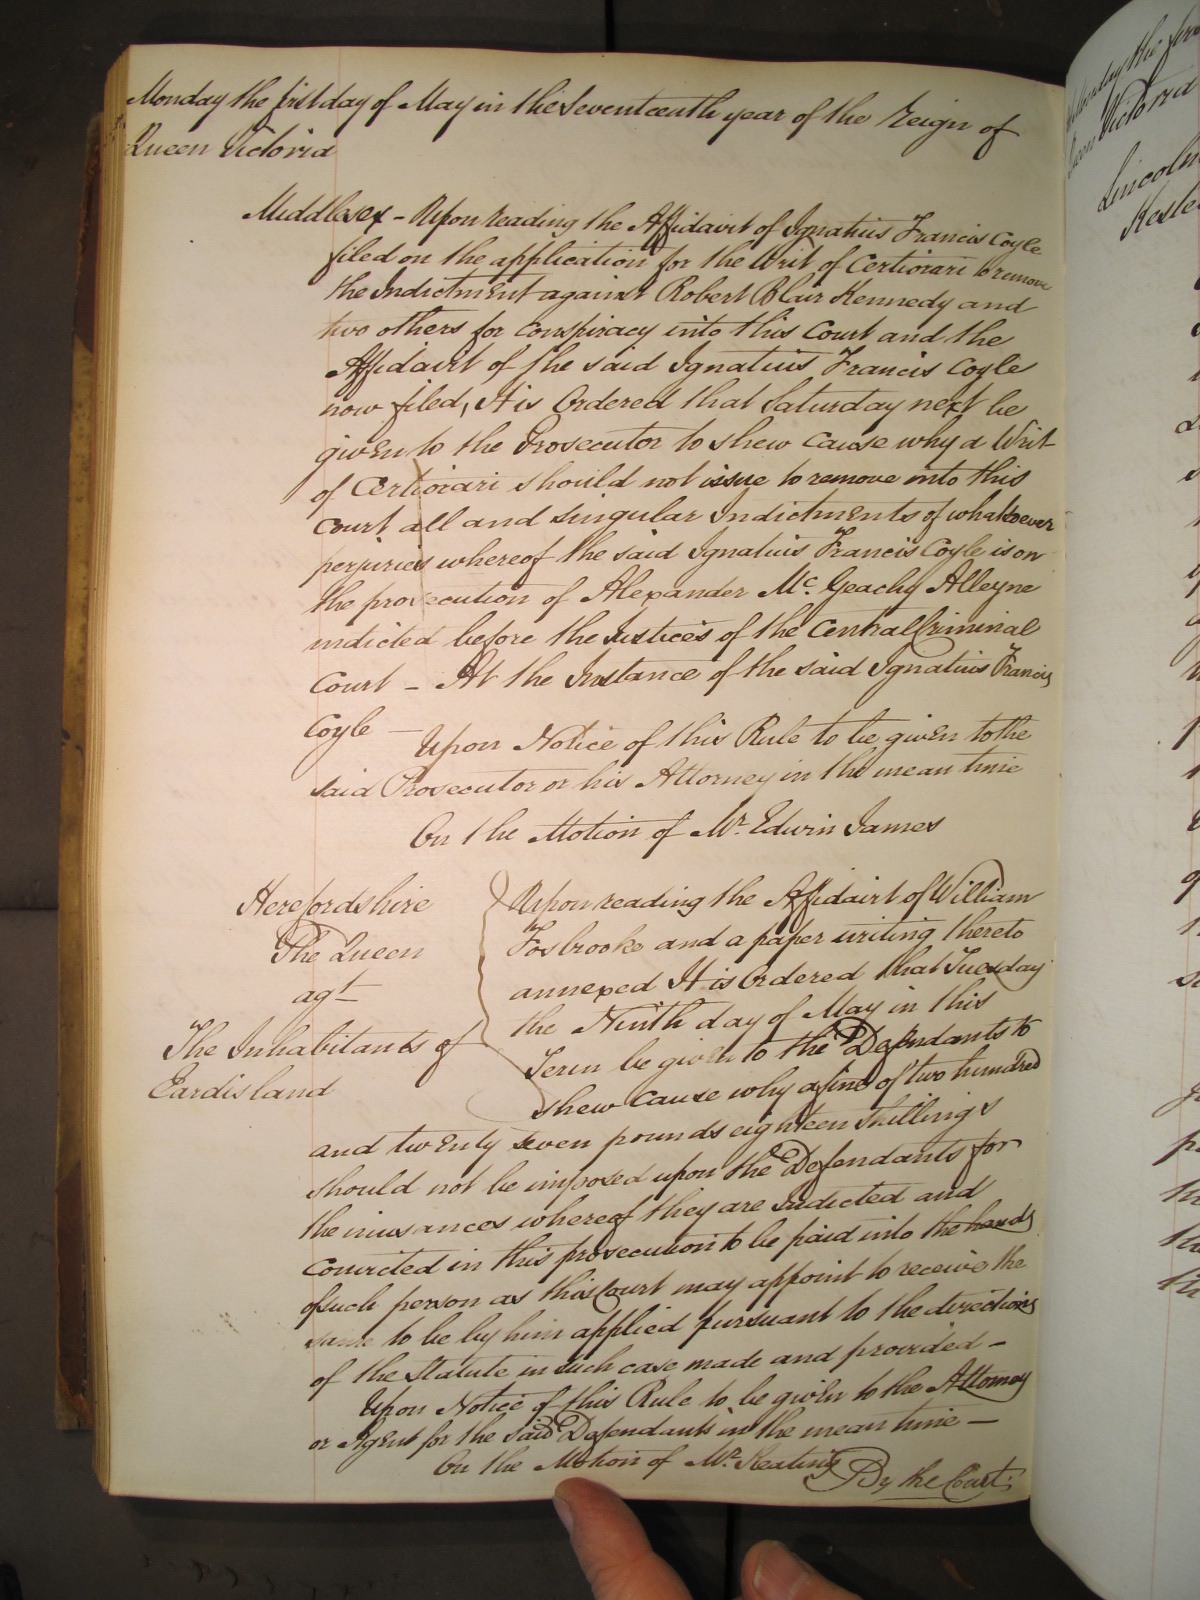 Monday the first day of May in the Seventeenth year of the reign of
Queen Victoria
Middlesex – Upon reading the Affidavit of Ignatius Francis Coyle
filed on the application for the Writ of Certiorari to remove
the Indictment against Robert Blair Kennedy and
two others for conspiracy into this Court and the
Affidavit of the said Ignatius Francis Coyle
now filed, It is Ordered that Saturday next be
given to the Prosecutor to shew cause why a Writ
of Certiorari should not issue to remove into this
Court all and singular Indictments of whatsoever
perjuries whereof the said Ignatius Francis Coyle is on
the prosecution of Alexander Mc. Geachy Alleyne
indicted before the Justices of the Central Criminal
Court – At the Instance of the said Ignatius Francis
Coyle –
Upon Notice of this Rule to be given to the
said Prosecutor or his Attorney in the mean time
On the Motion of Mr. Edwin James
Herefordshire
The Queen
agt
The Inhabitants of
Eardisland
Upon reading the Affidavit of William
Fosbrooke and a paper writing thereto
annexed It is Ordered that Tuesday
the Ninth day of May in this
Term be given to the Defendants to
shew cause why a fine of two hundred
and twenty seven pounds eighteen shillings
should not be imposed upon the Defendants for
the nuisances whereof they are indicted and
convicted in this prosecution to be paid into the hands
of such person as this Court may appoint to receive the
same to be by him applied pursuant to the directions
of the Statute in such case made and provided –
Upon Notice of this Rule to be given to the Attorney
or Agent for the said Defendants in the mean time –
On the Motion of Mr. Keating
By the Court
Victoria